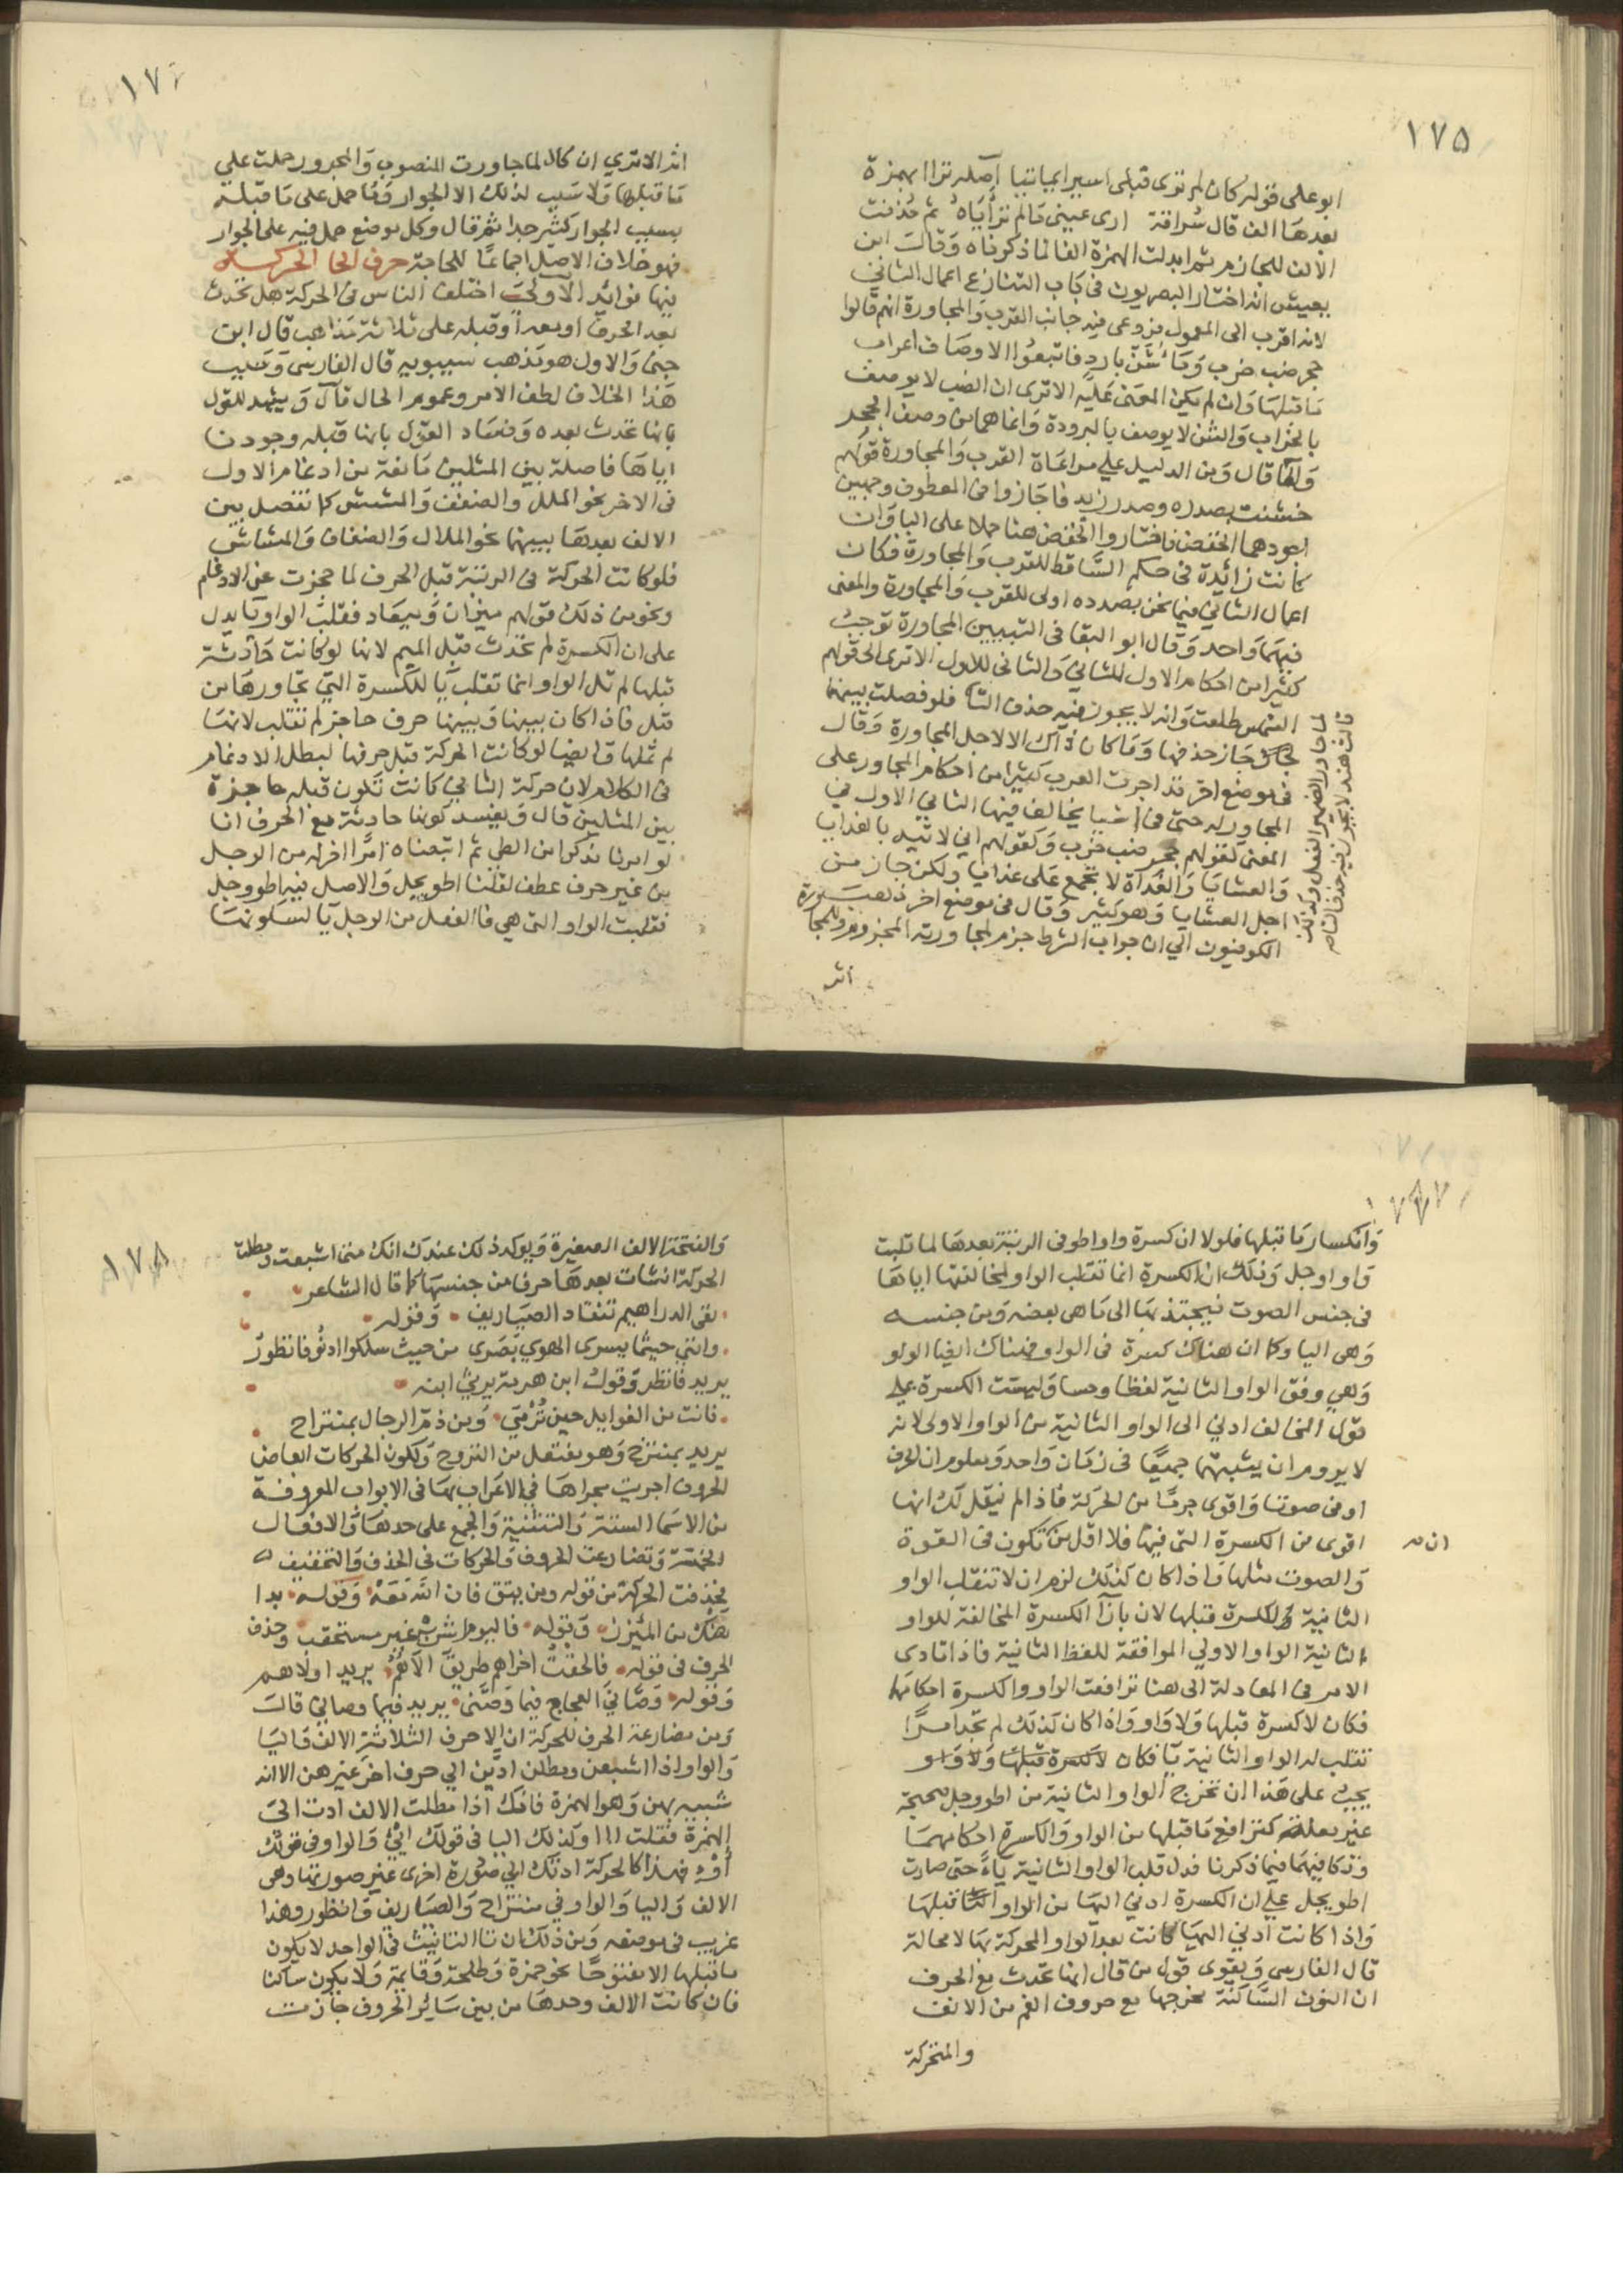 ١٧٥
ابو على قوله كان لم ترى قبلى اسيرا يمانيا اصله ترا ابهمزة
بعدها الف قال سُراقة ارى عينى مالم ترأياه ثم حُذفت
الالف للجازم ثم ابدلت الهمزة الفا لما ذكرناه وقال ابن
يعيش انه اختار البصريون فى كتاب التنازع اعمال الثاني
لانه اقرب الى المعمول فروعى فيه جانب القرب والمجاورة انهم قالوا
حجر ضب خرب وما شن بارد فاتبعوا الاوصاف اعراب
ما قبلها وان لم يكن المعنى عليه الا ترى ان الضب لا يوصف
بالخراب والشن لا يوصف بالبرودة وانما هما من وصف الحجر
والما قال ومن الدليل على مراعاة القرب والمجاورة قولهم
خشنت بصدره وصدر زيد فاجازوا فى المعطوف وجهين
اجودهما الخفض فاختاروا الخفض هنا حملا على البا وان
كانت زائدة فى حكم الساقط للقرب والمجاورة فكان
اعمال الثاني فيما نحن بصدده اولى للقرب والمجاورة والمعنى
فيهما واحد وقال ابو البقا فى التبيين المجاورة توجب
كثيرا من احكام الاول للثاني والثانى للاول الا ترى الى قولهم
الشمس طلعت وانه لا يجوز فيه حذف التا فلو فصلت بينهما
لجاز حذفها وما كان ذاك الا لاجل المجاورة وقال
فى موضع اخر قد اجرت العرب كثيرا من احكام المجاور على
المجاور له حتى فى اشيا يخالف فيها الثاني الاول في
المعنى لقولهم جحر ضب خرب وكقولهم اني لاتيه بالغدايا
والعشايا والغداة لا تجمع على غدايا ولكن جاز من
اجل العشايا وهو كثير وقال فى موضع اخر ذهب
الكوفيون الي ان جواب الشرط جزم لمجاورته المجزوم وللجا
اثر
لما جاور الضمير الفعل وكذلك
قامت هند لا يجوز فيه حذف التا
١٧٦
اثر الا ترى ان كان لما جاورت المنصوب والمجرور حملت علي
ما قبلها ولا سبب لذلك الا الجوار وما حمل على ما قبله
بسبب الجوار كثير جدا ثم قال وكل موضع حمل فيه على الجوار
فهو خلاف الاصل اجماعا للحاجة حرف الحا الحركة
فيها فوائد الاولى اختلف الناس فى الحركة هل تحدث
بعد الحرف او معه او قبله على ثلاثة مذاهب قال ابن
جنى والاول هو مذهب سيبويه قال الفارسى وسبب
هذا الخلاف لطف الامر وعموم الحال قال ويشهد للقول
بانها تحدث بعده وفساد القول بانها قبله وجودنا
اياها فاصلة بين المثلين مانعة من ادغام الاول
فى الاخر نحو الملل والضعف والمشش كما تفصل بين
الالف بعدها بينهما نحو الملال والضفاف والمشاش
فلو كانت الحركة فى الرتبة قبل الحرف لما حجزت عن الادغام
ونحو من ذلك قولهم ميزان وميعاد فقلب الواو يا يدل
على ان الكسرة لم تحدث قبل الميم لانها لو كانت حادثة
قبلها لم تل الواو وانما تقلب يا للكسرة التى تجاورها من
قبل فاذا كان بينها وبينها حرف حاجز لم تقلب لانها
لم تلها وايضا لو كانت الحركة قبل حرفها لبطل الادغام
فى الكلام لان حركة الثاني كانت تكون قبله حاجزة
بين المثلين قال ويفسد كونها حادثة مع الحرف انا
لو امرنا مذكرا من الطي ثم اتبعناه امرا اخر له من الوجل
من غير حرف عطف لقلنا اطويجل والاصل فيه اطووجل
فقلبت الواو التى هى فا الفعل من الوجل يا لسكونها
١٧٧
وانكسار ما قبلها فلولا ان كسرة واو اطو فى الرتبة بعدها لما قلبت
واو اوجل وذلك ان الكسرة انما تقلب الواو لمخالفتها اياها
فى جنس الصوت فيجتذبها الى ما هى بعضه ومن جنسه
وهى اليا وكما ان هناك كسرة فى الواو فهناك ايضا الواو
وهي وفق الواو الثانية لفظا وحسا وليست الكسرة علي
قول المخالف ادنى الى الواو الثانية من الواو الاولى لانه
لا يروم ان يثبتهما جميعا فى زمان واحد ومعلوم ان الحرف
اوفى صوتا واقوى جرسا من الحركة فاذا لم نقل لك انها
اقوى من الكسرة التى فيها فلا اقل من تكون فى القوة
ان
والصوت مثلها واذا كان كذلك لزم ان لا تنقلب الواو
الثانية للكسرة قبلها لان بازا الكسرة المخالفة للواو
الثانية الواو الاولي الموافقة للفظ الثانية فاذا تادى
الامر فى المعادلة الى هنا ترافعت الواو والكسرة احكامها
فكان لا كسرة قبلها ولا واو واذا كان كذلك لم تجد امرا
تقلب له الواو الثانية يا فكان لا كسرة قبلها ولا واو
يجب على هذا ان تخرج الواو الثانية من اطووجل صحيحة
غير معلة لترافع ما قبلها من الواو والكسرة احكامهما
وتكافيهما فيما ذكرنا فدل قلب الواو الثانية ياء حتى صارت
اطويجل علي ان الكسرة ادنى اليها من الواو قبلها
واذا كانت ادني اليها كانت بعد الواو المحركة بها لا محالة
قال الفارسى ويقوى قول من قال انها تحدث مع الحرف
ان النون الساكنة مخرجها مع حروف الفم من الانف
والمتحركة
١٧٨
والفتحة الالف الصغيرة ويوكد ذلك عندك انك متى اشبعت ومطلت
الحركة انشات بعدها حرفا من جنسها كما قال الشاعر
نفى الدراهيم تنقاد الصياريف وقوله
وانني حيثما يسرى الهوى بصرى من حيث ما سلكوا ادنو فانظور
يريد فانظر وقول ابن هرمة يرثي ابنه
فانت من الغوايل حين تُرْمَى ومن ذم الرجال بمنتزاح
يريد بمنتزح وهو مفتعل من النزوح ولكون الحركات ابعاض
الحروف اجريت مجراها في الاعراب بها فى الابواب المعروفة
من الاسما الستة والتثنية والجمع على حدها والافعال
الخمسة وتضارعت الحروف والحركات فى الحذف والتخفيف
فحذفت الحركة من قوله ومن يتق فان الله معه وقوله بدا
هنك من المئزر وقوله فاليوم اشرب غير مستحقب وحذف
الحرف فى قوله فالحقت اخراهم طريق الاهم يريد اولاهم
وقوله وصاني العجاج فيما وصنى يريد فيما وصاني قال
ومن مضارعة الحرف للحركة ان الاحرف الثلاثة الالف واليا
والواو اذا اشبعن ومطلن ادين الي حرف اخر غيرهن الا انه
شبيه بهن وهو الهمزة فانك اذا مطلت الالف ادت الى
الهمزة فقلت ااا وكذلك اليا فى قولك ائ والواو فى قولك
اؤ فهذا كالحركة ادتك الي صورة اخرى غير صورتها وهى
الالف واليا والواو في منتزاح والصياريف وانظور وهذا
غريب فى موضعه ومن ذلك ان تا التانيث فى الواحد لا يكون
ما قبلها الا مفتوحا نحو حمزة وطلحة وقايمة ولا يكون ساكنا
فان كانت الالف وحدها من بين ساير الحروف جازت